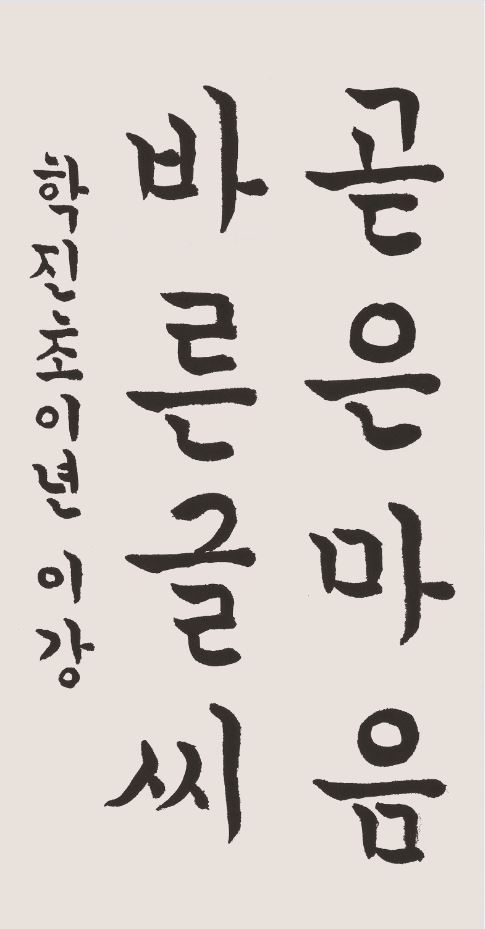 곧은마음
바른글씨
학진초이년 이강